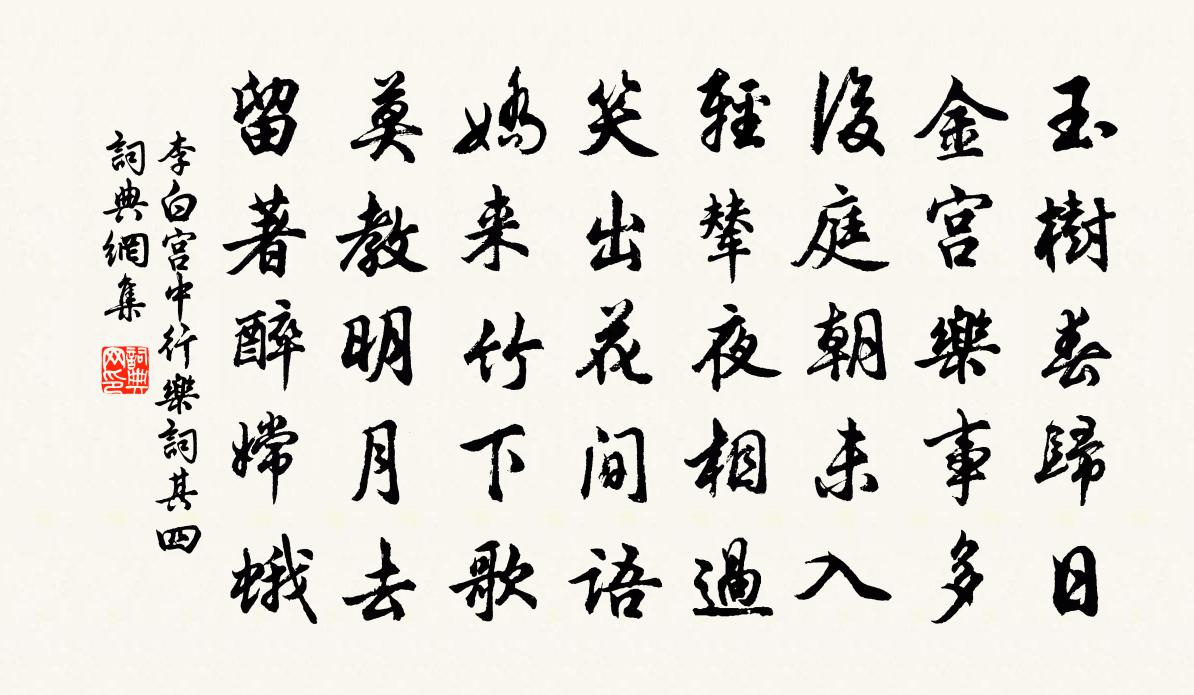 玉樹春歸日
金宮樂事多
後庭朝未入
輕輦夜相過
笑出花間語
嬌来竹下歌
莫教明月去
留著醉嫦蛾
李白宮中行樂詞其四
詞典網集
詞典网印